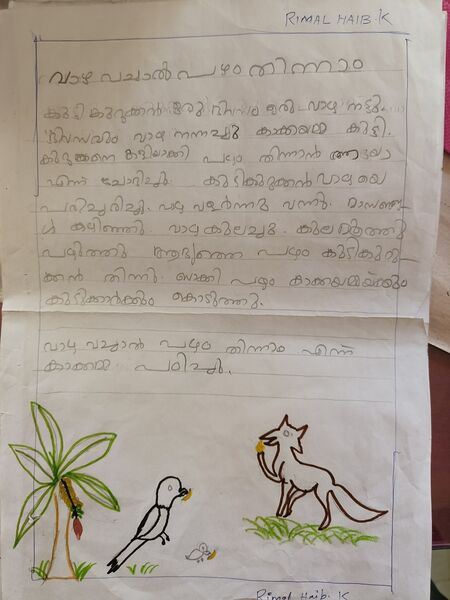 RIMAL HAIB. K
വാഴ വച്ചാൽ പഴം തിന്നാം
കുട്ടി കുറുക്കൻ ഒരു ദിവസം ഒരു വാഴ നട്ടു.
ദിവസവും വാഴ നനച്ചു കാക്കയമ്മ കുട്ടി
കുറുക്കനെ കളിയാക്കി പഴം തിന്നാൻ
എന്ന് ചോദിച്ചു. കുട്ടികുറുക്കൻ വാഴയെ
പരിചരിച്ചു. വാഴ വളർന്നു വന്നു. മാസങ്ങ
ൾ കഴിഞ്ഞു. വാഴ കുലച്ചു. കുല മൂത്തു
പഴുത്തു ആദ്യത്തെ പഴം കുട്ടികുറു
ക്കൻ തിന്നു. ബാക്കി പഴം കാക്കയമ്മയ്ക്കും
കുട്ടിക്കാർക്കും കൊടുത്തു.
വാഴ വച്ചാൽ പഴം തിന്നാം എന്ന്
കാക്കമ്മ പഠിച്ചു.
Rimal Haib. K